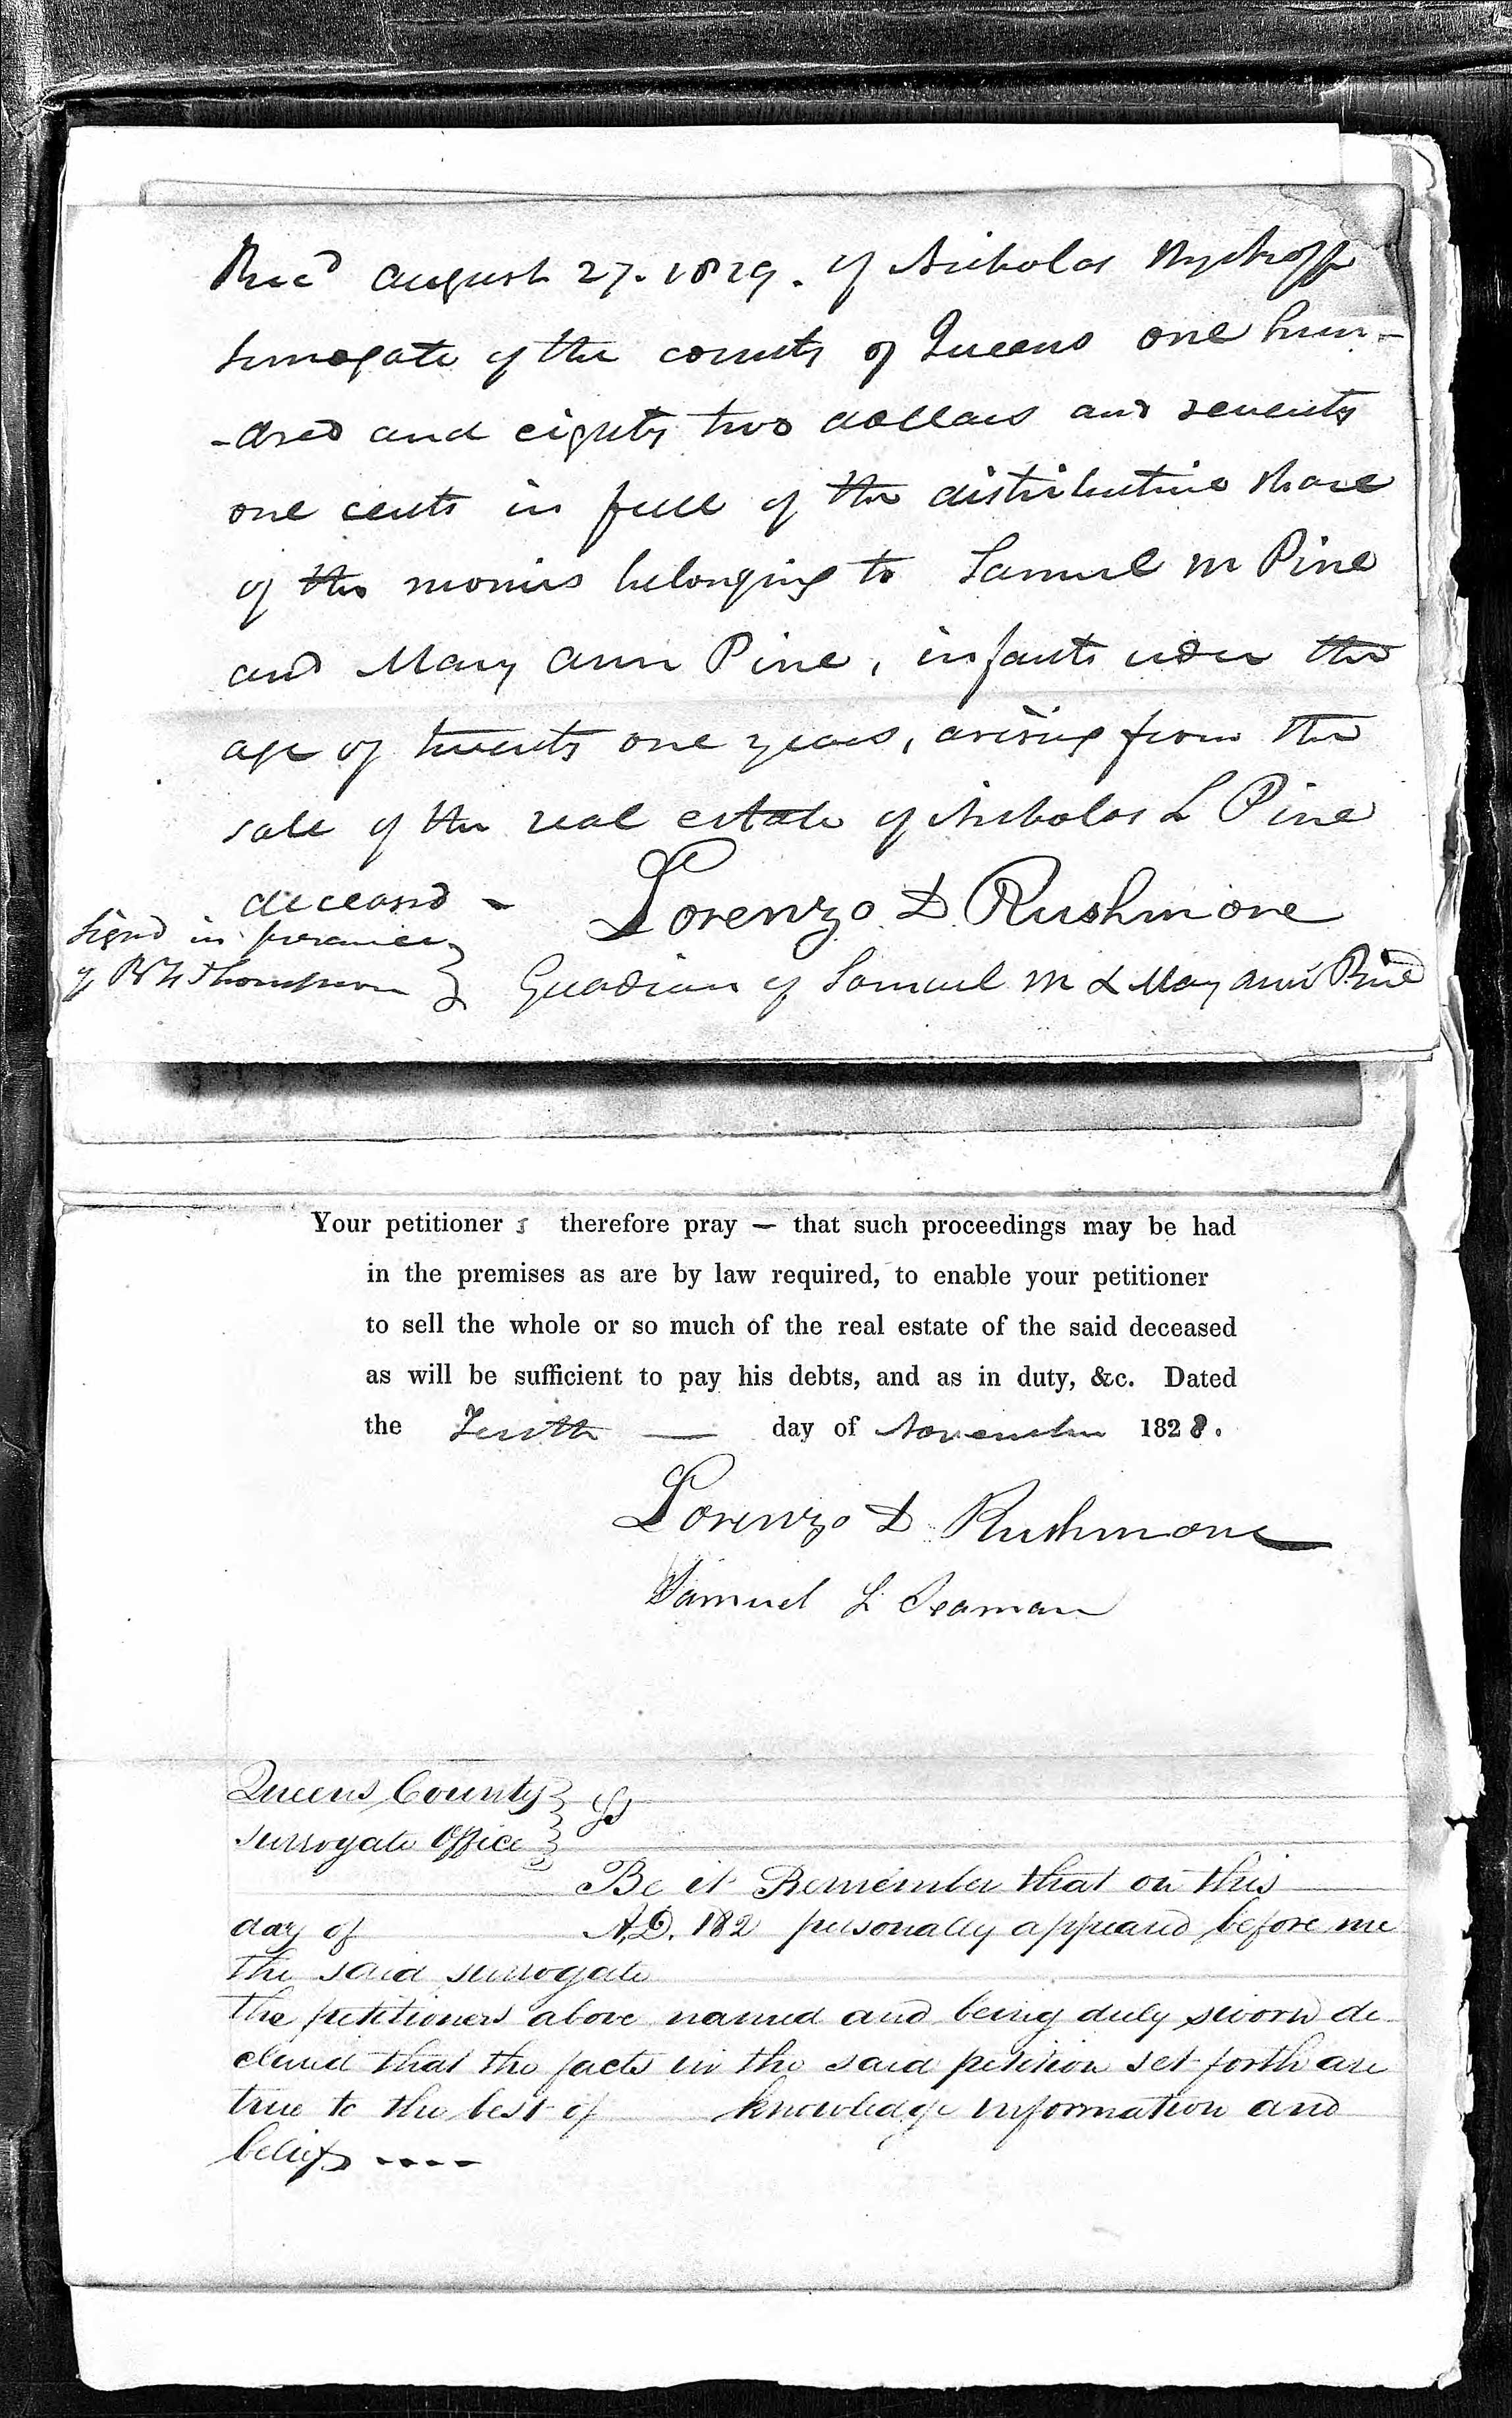 Rec^d August 27. 1829. of Nicholas Wyckoff
surrogate of the county of Queens one hun-
-dred and eighty two dollars and seventy
one cents in full of the distributive share
of the monies belonging to Samuel M Pine
and Mary Ann Pine, infants under the
age of twenty one years, arising from the
sale of the real estate of Nicholas L Pine
deceased -
Lorenzo D. Rushmore
Guardian of Samuel M & Mary Ann Pine
Signd in presence
of B F Thompson
Your petitioner s therefore pray — that such proceedings may be had
in the premises as are by law required, to enable your petitioner
to sell the whole or so much of the real estate of the said deceased
as will be sufficient to pay his debts, and as in duty, &c. Dated
the Tenth — day of November 1828.
Lorenzo D. Rushmore
Samuel L Seaman
Queens County } Ss
Surrogate Office
Be it Remember that on this
day of A.D. 182 personally appeared before me
the said surrogate
the petitioners above named and being duly sworn de
clared that the facts in the said petition set forth are
true to the best of knowledge information and
belief ----